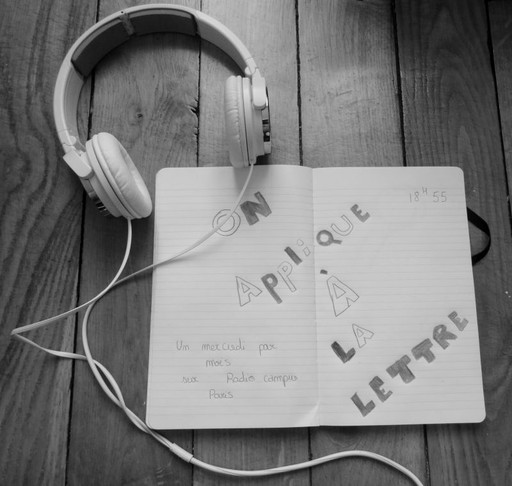 18H55
ON
APPliQUE
À
LA
LETTRE
Un mercredi par
mois
sur Radio campus
Paris